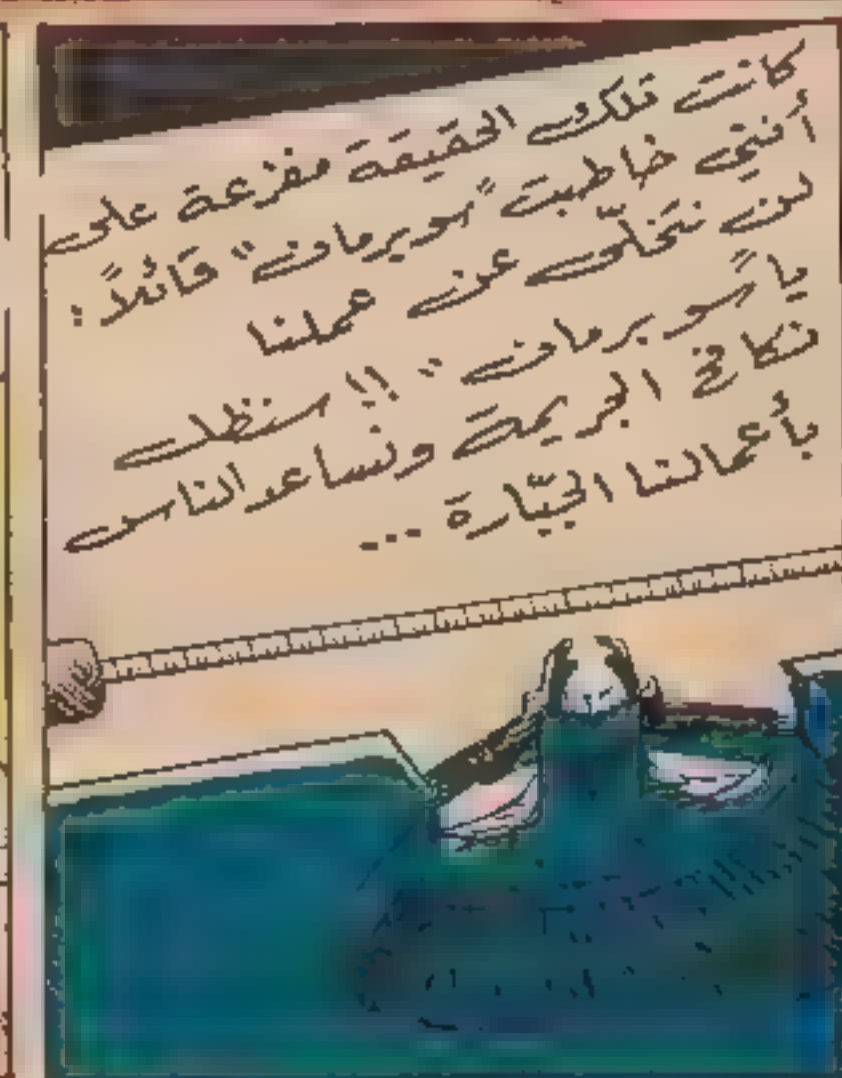 كانت تلك الحقيقة مفزعة على
أنني خاطبت "سوبرمان" قائلاً :
لن نتخلّى عن عملنا
يا "سوبرمان" !! سنظل
نكافح الجريمة ونساعد الناس
بأعمالنا الجبّارة ...